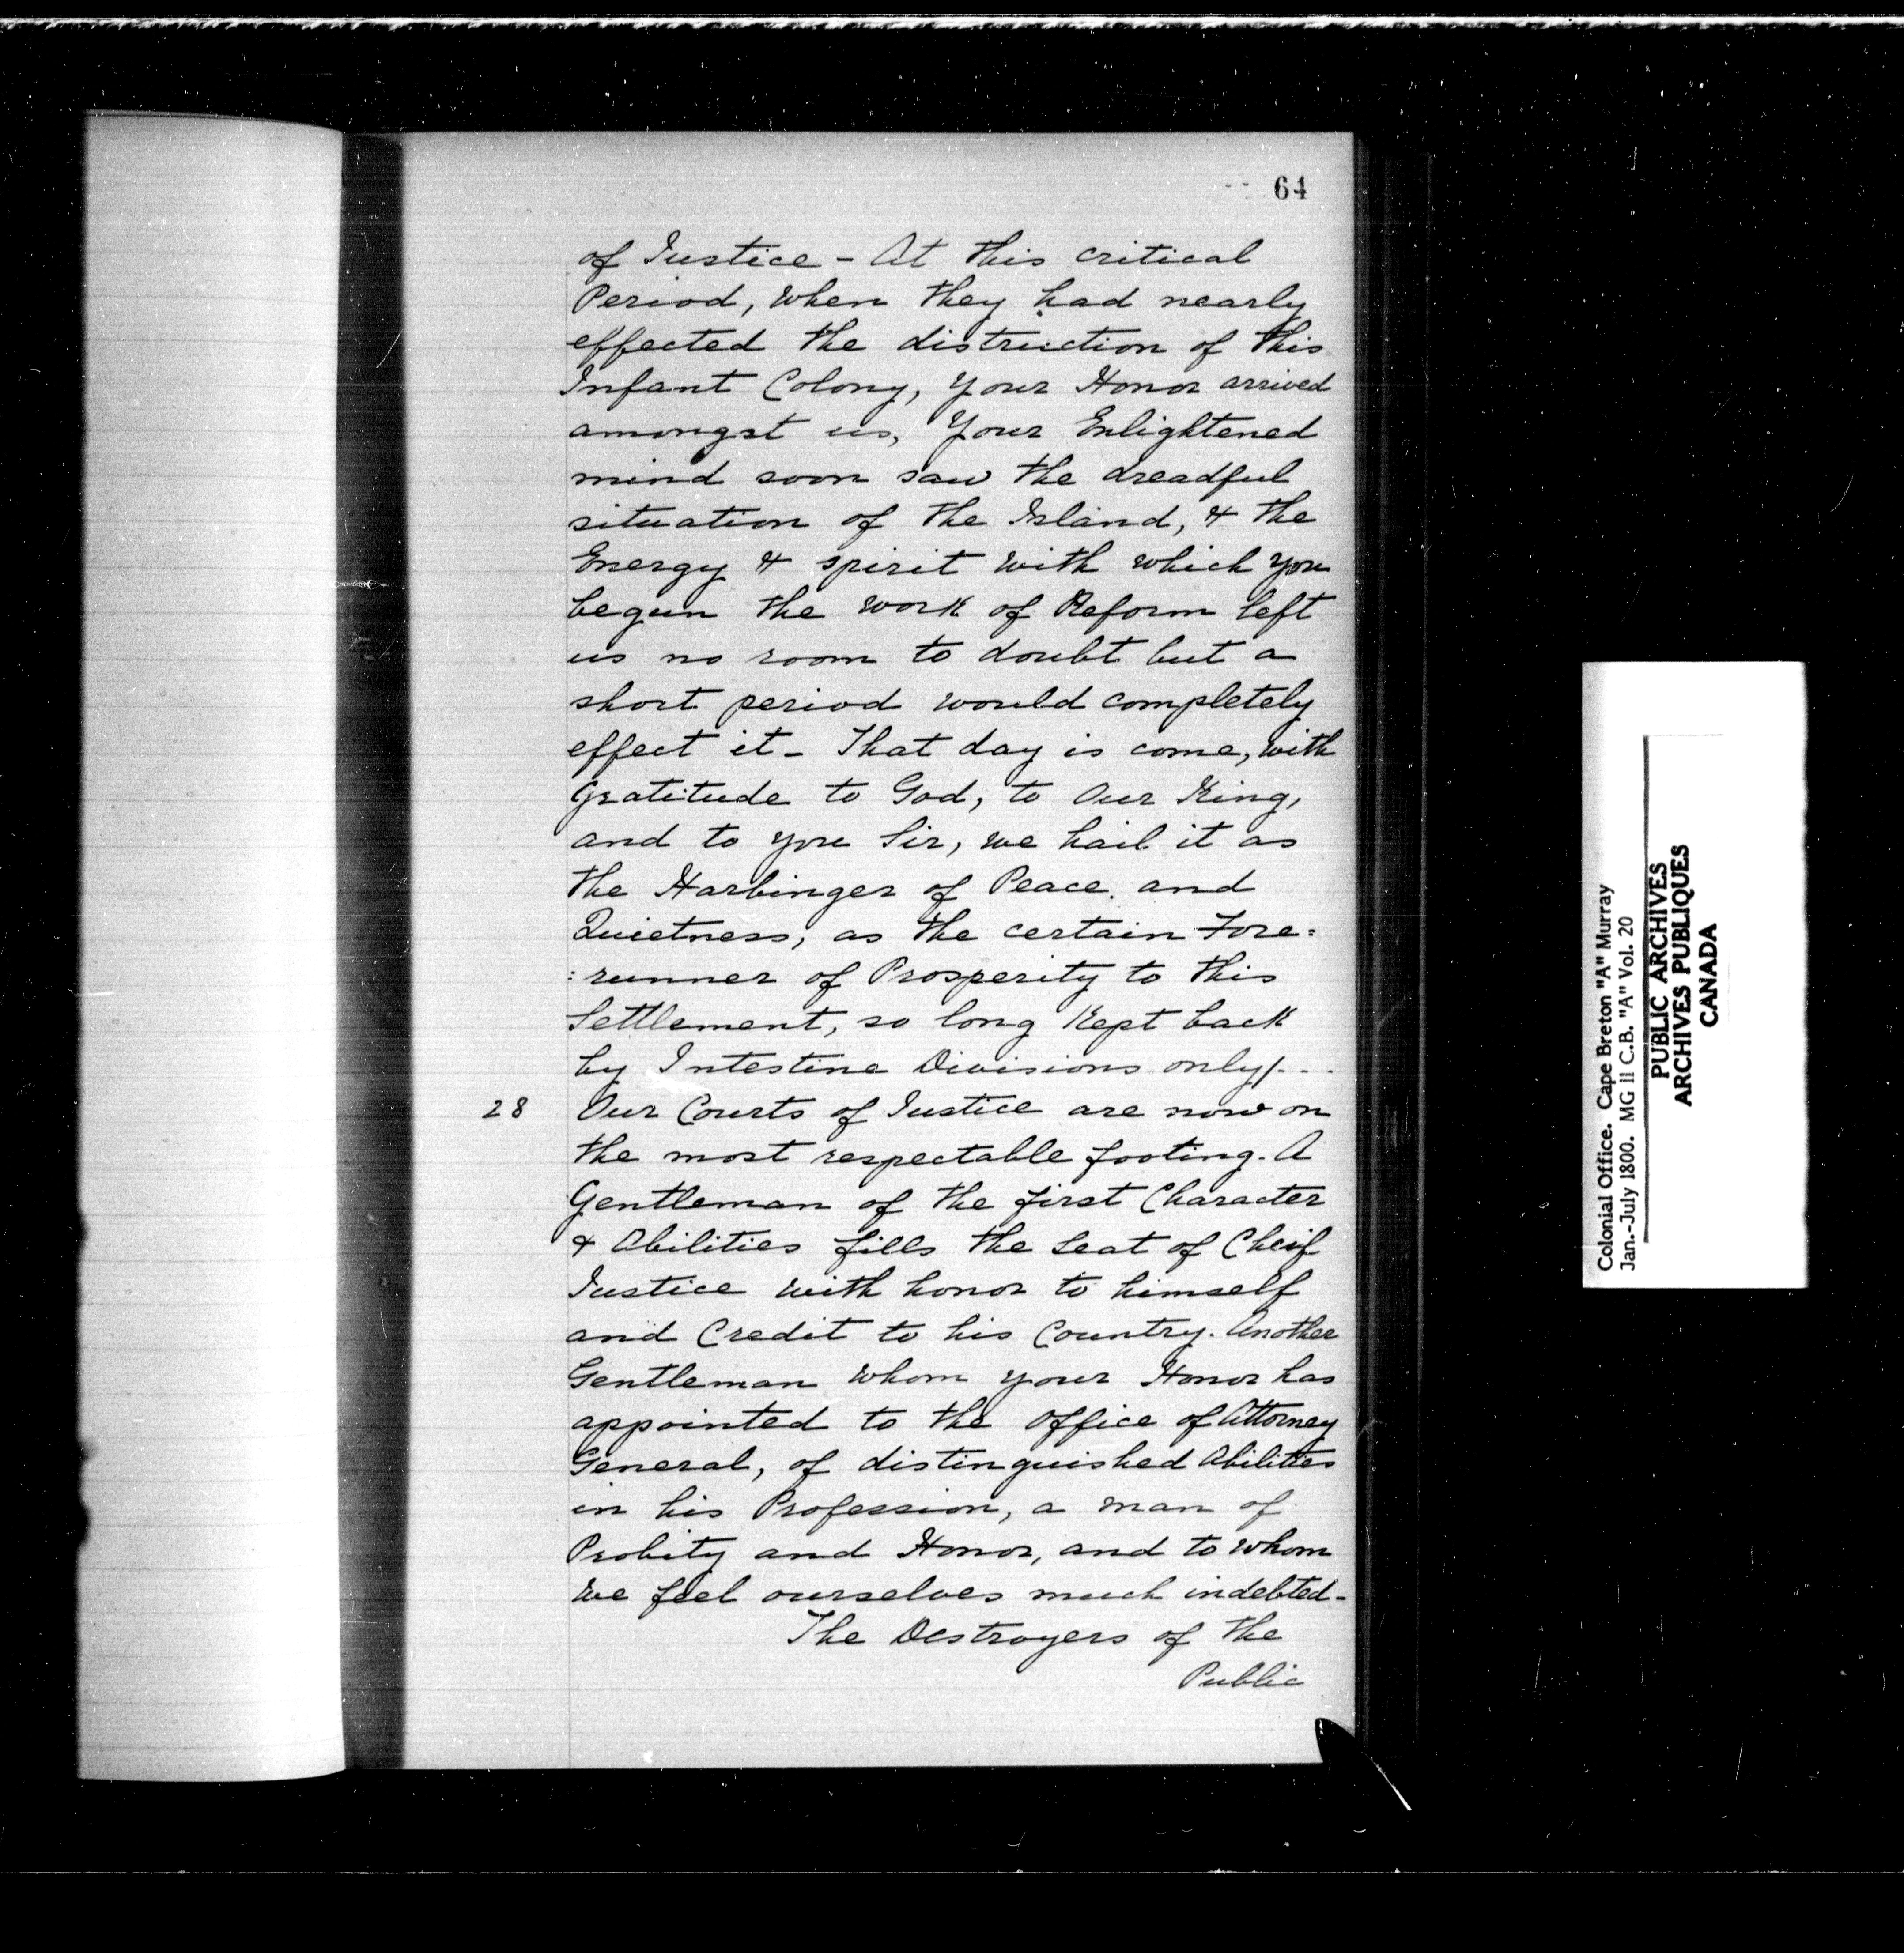 64
of Justice - At this critical
Period, when they had nearly
effected the distruction of this
Infant Colony, Your Honor arrived
amongst us, Your Enlightened
mind soon saw the dreadful
situation of the Island, & the
Energy & spirit with which you
begun the work of Reform left
us no room to doubt but a
short period would completely
effect it - That day is come, with
Gratitude to God, to Our King,
and to you Sir, we hail it as
the Harbinger of Peace and
Quietness, as the certain Fore=
:runner of Prosperity to this
Settlement, so long Kept back
by Intestine Divisions only/...
28 Our Courts of Justice are now on
the most respectable footing. A
Gentleman of the first Character
& Abilities fills the Seat of Cheif
Justice with honor to himself
and Credit to his Country. Another
Gentleman whom your Honor has
appointed to the Office of Attorney
General, of distinguished Abilities
in his Profession, a man of
Probity and Honor, and to whom
we feel ourselves much indebted -
The Destroyers of the
Public
Colonial Office. Cape Breton "A" Murray
Jan.-July 1800. MG 11 C.B. "A" Vol. 20
PUBLIC ARCHIVES
ARCHIVES PUBLIQUES
CANADA